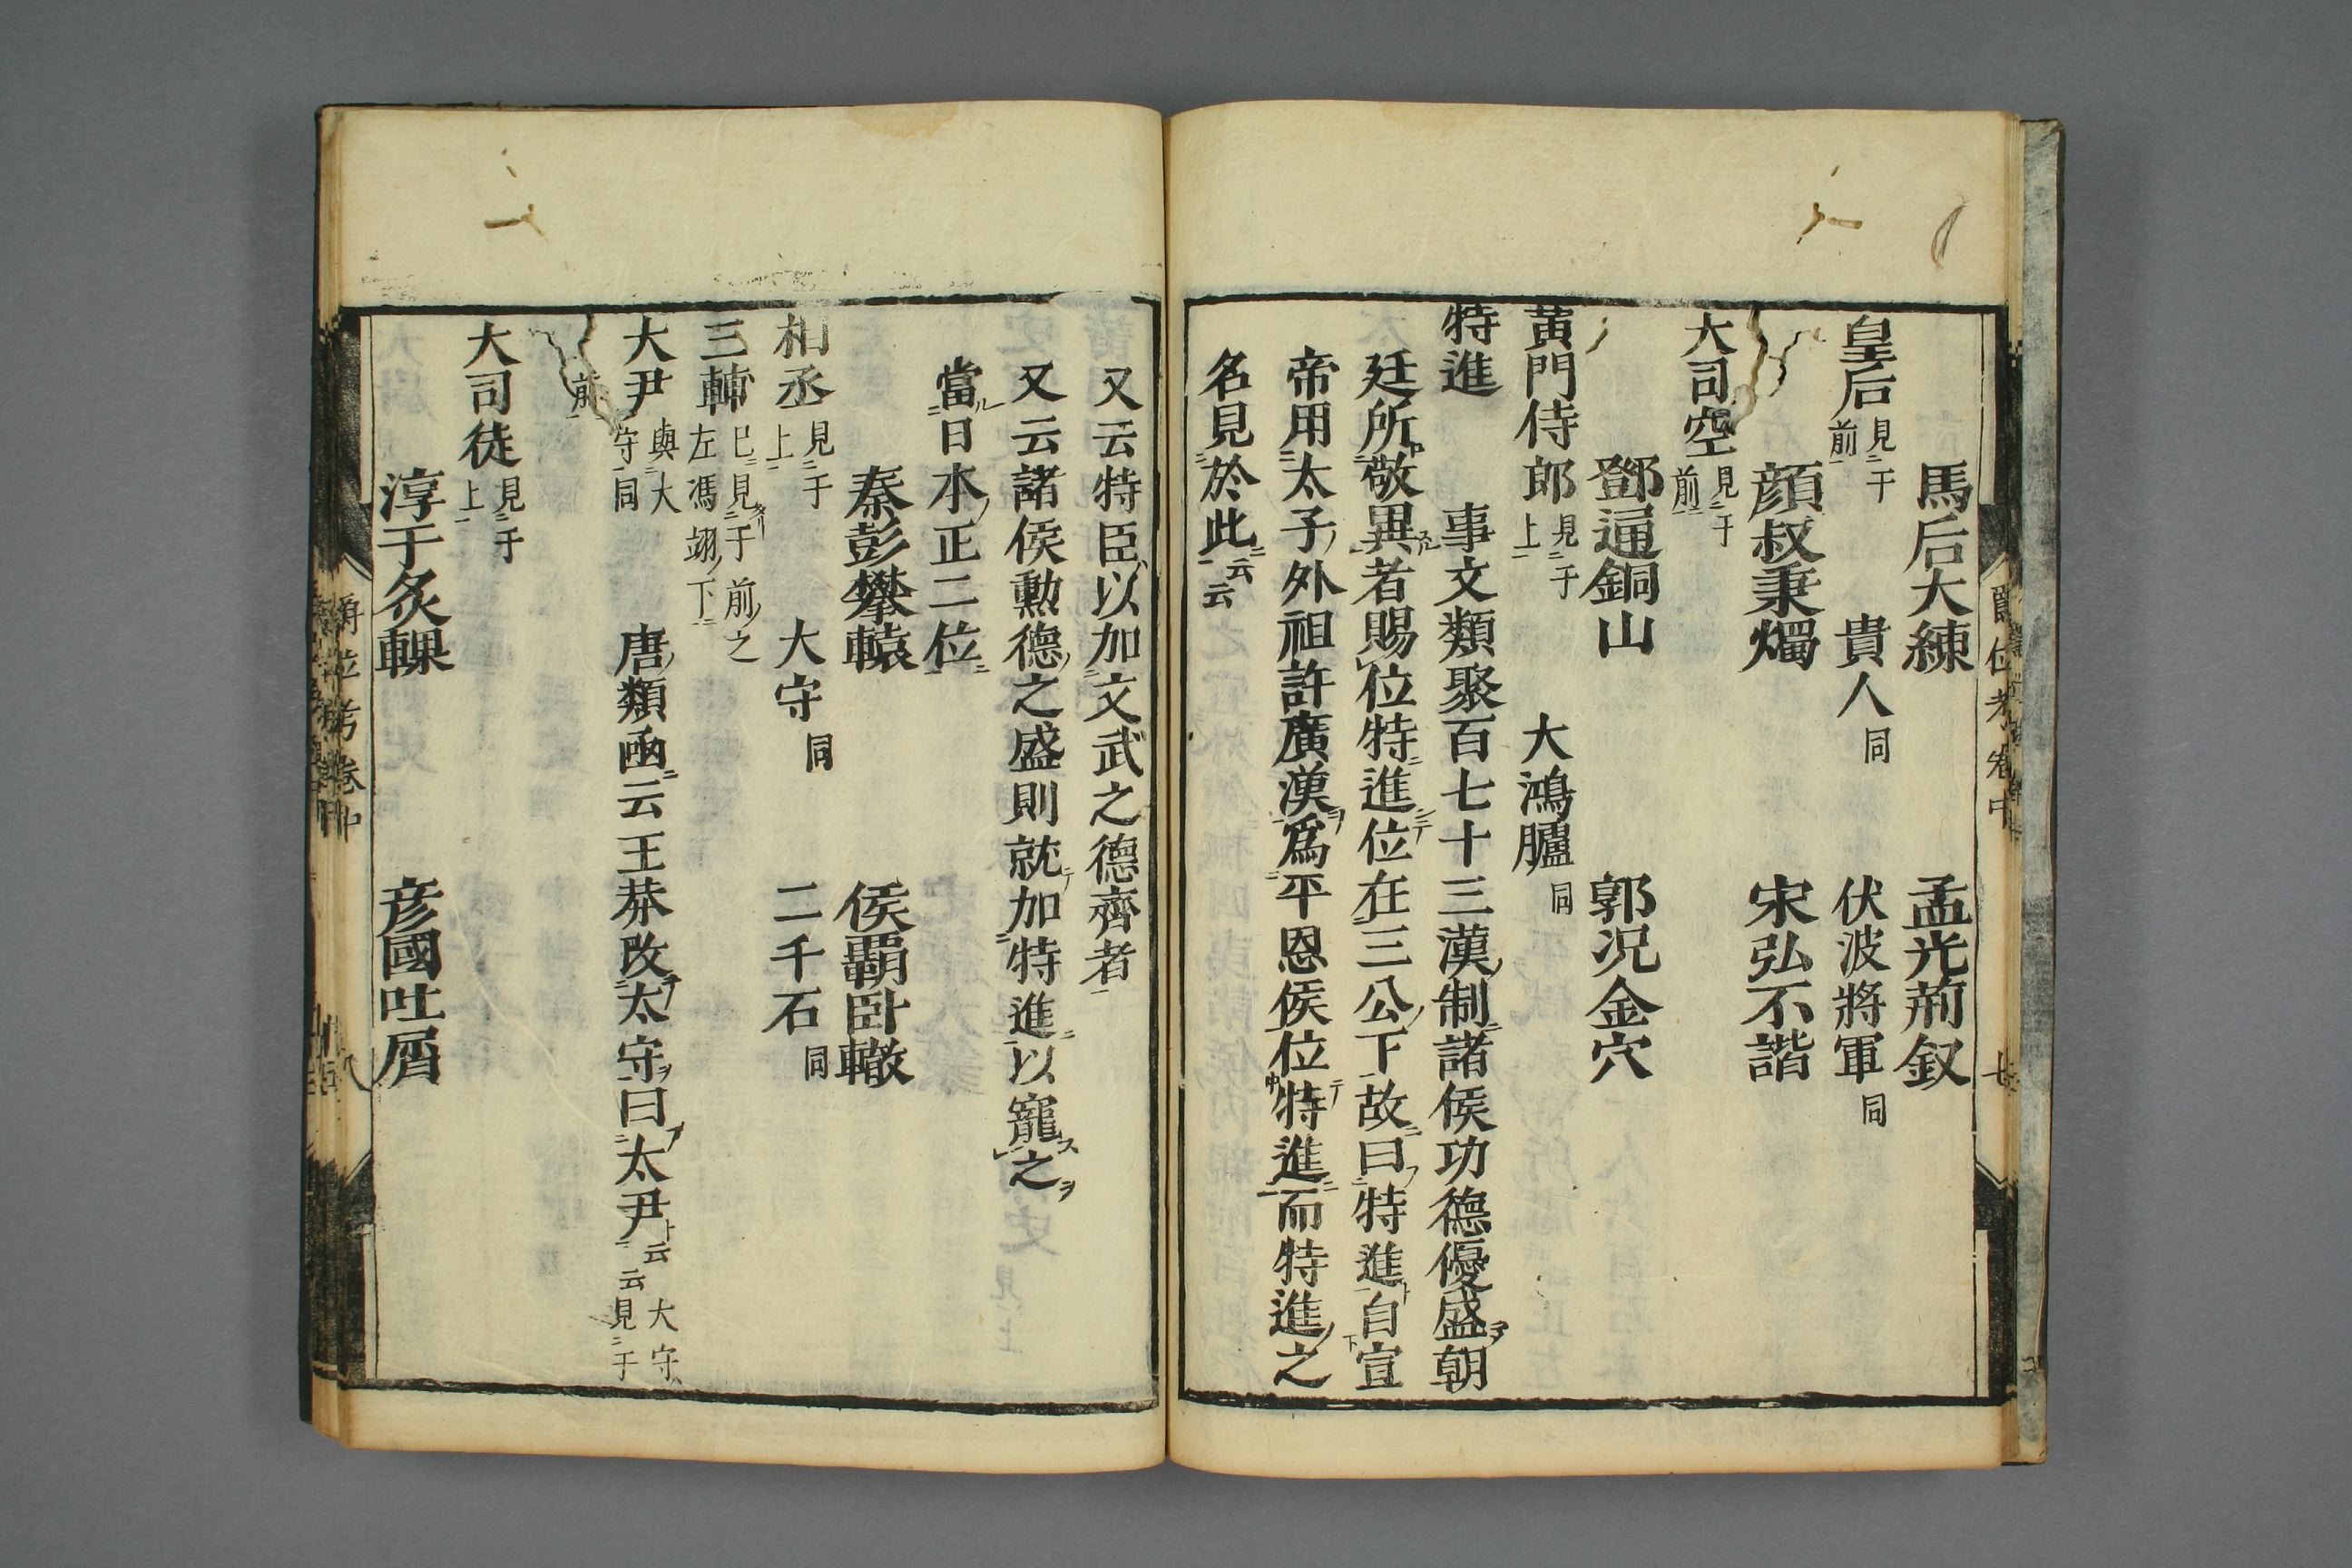 馬后大練 孟光荊釵
皇后見于前 貴人同 伏波將軍同
顏叔秉燭 宋弘不諧
大司空見于前
鄧通銅山 郭况金穴
黃門侍郎見于上 大鴻臚同
特進 事文類聚百七十三漢制諸侯功德優盛朝
廷所敬異者賜位特進位在三公下故曰特進自宣
帝用太子外祖許廣漢爲平恩侯位特進而特進之
名見於此云云
又云特臣以加文武之德齊者
又云諸侯勲德之盛則就加特進以寵之
當日本正二位
秦彭攀轅 侯霸卧轍
相丞見于上 大守同 二千石同
三輔巳見于前之左馮翊下
大尹與大守同 唐類函云王莽改太守曰太尹云云大守見于
前
大司徒見于上
淳于炙輠 彦國吐屑
爵位考卷中 七
爵位考卷中 八